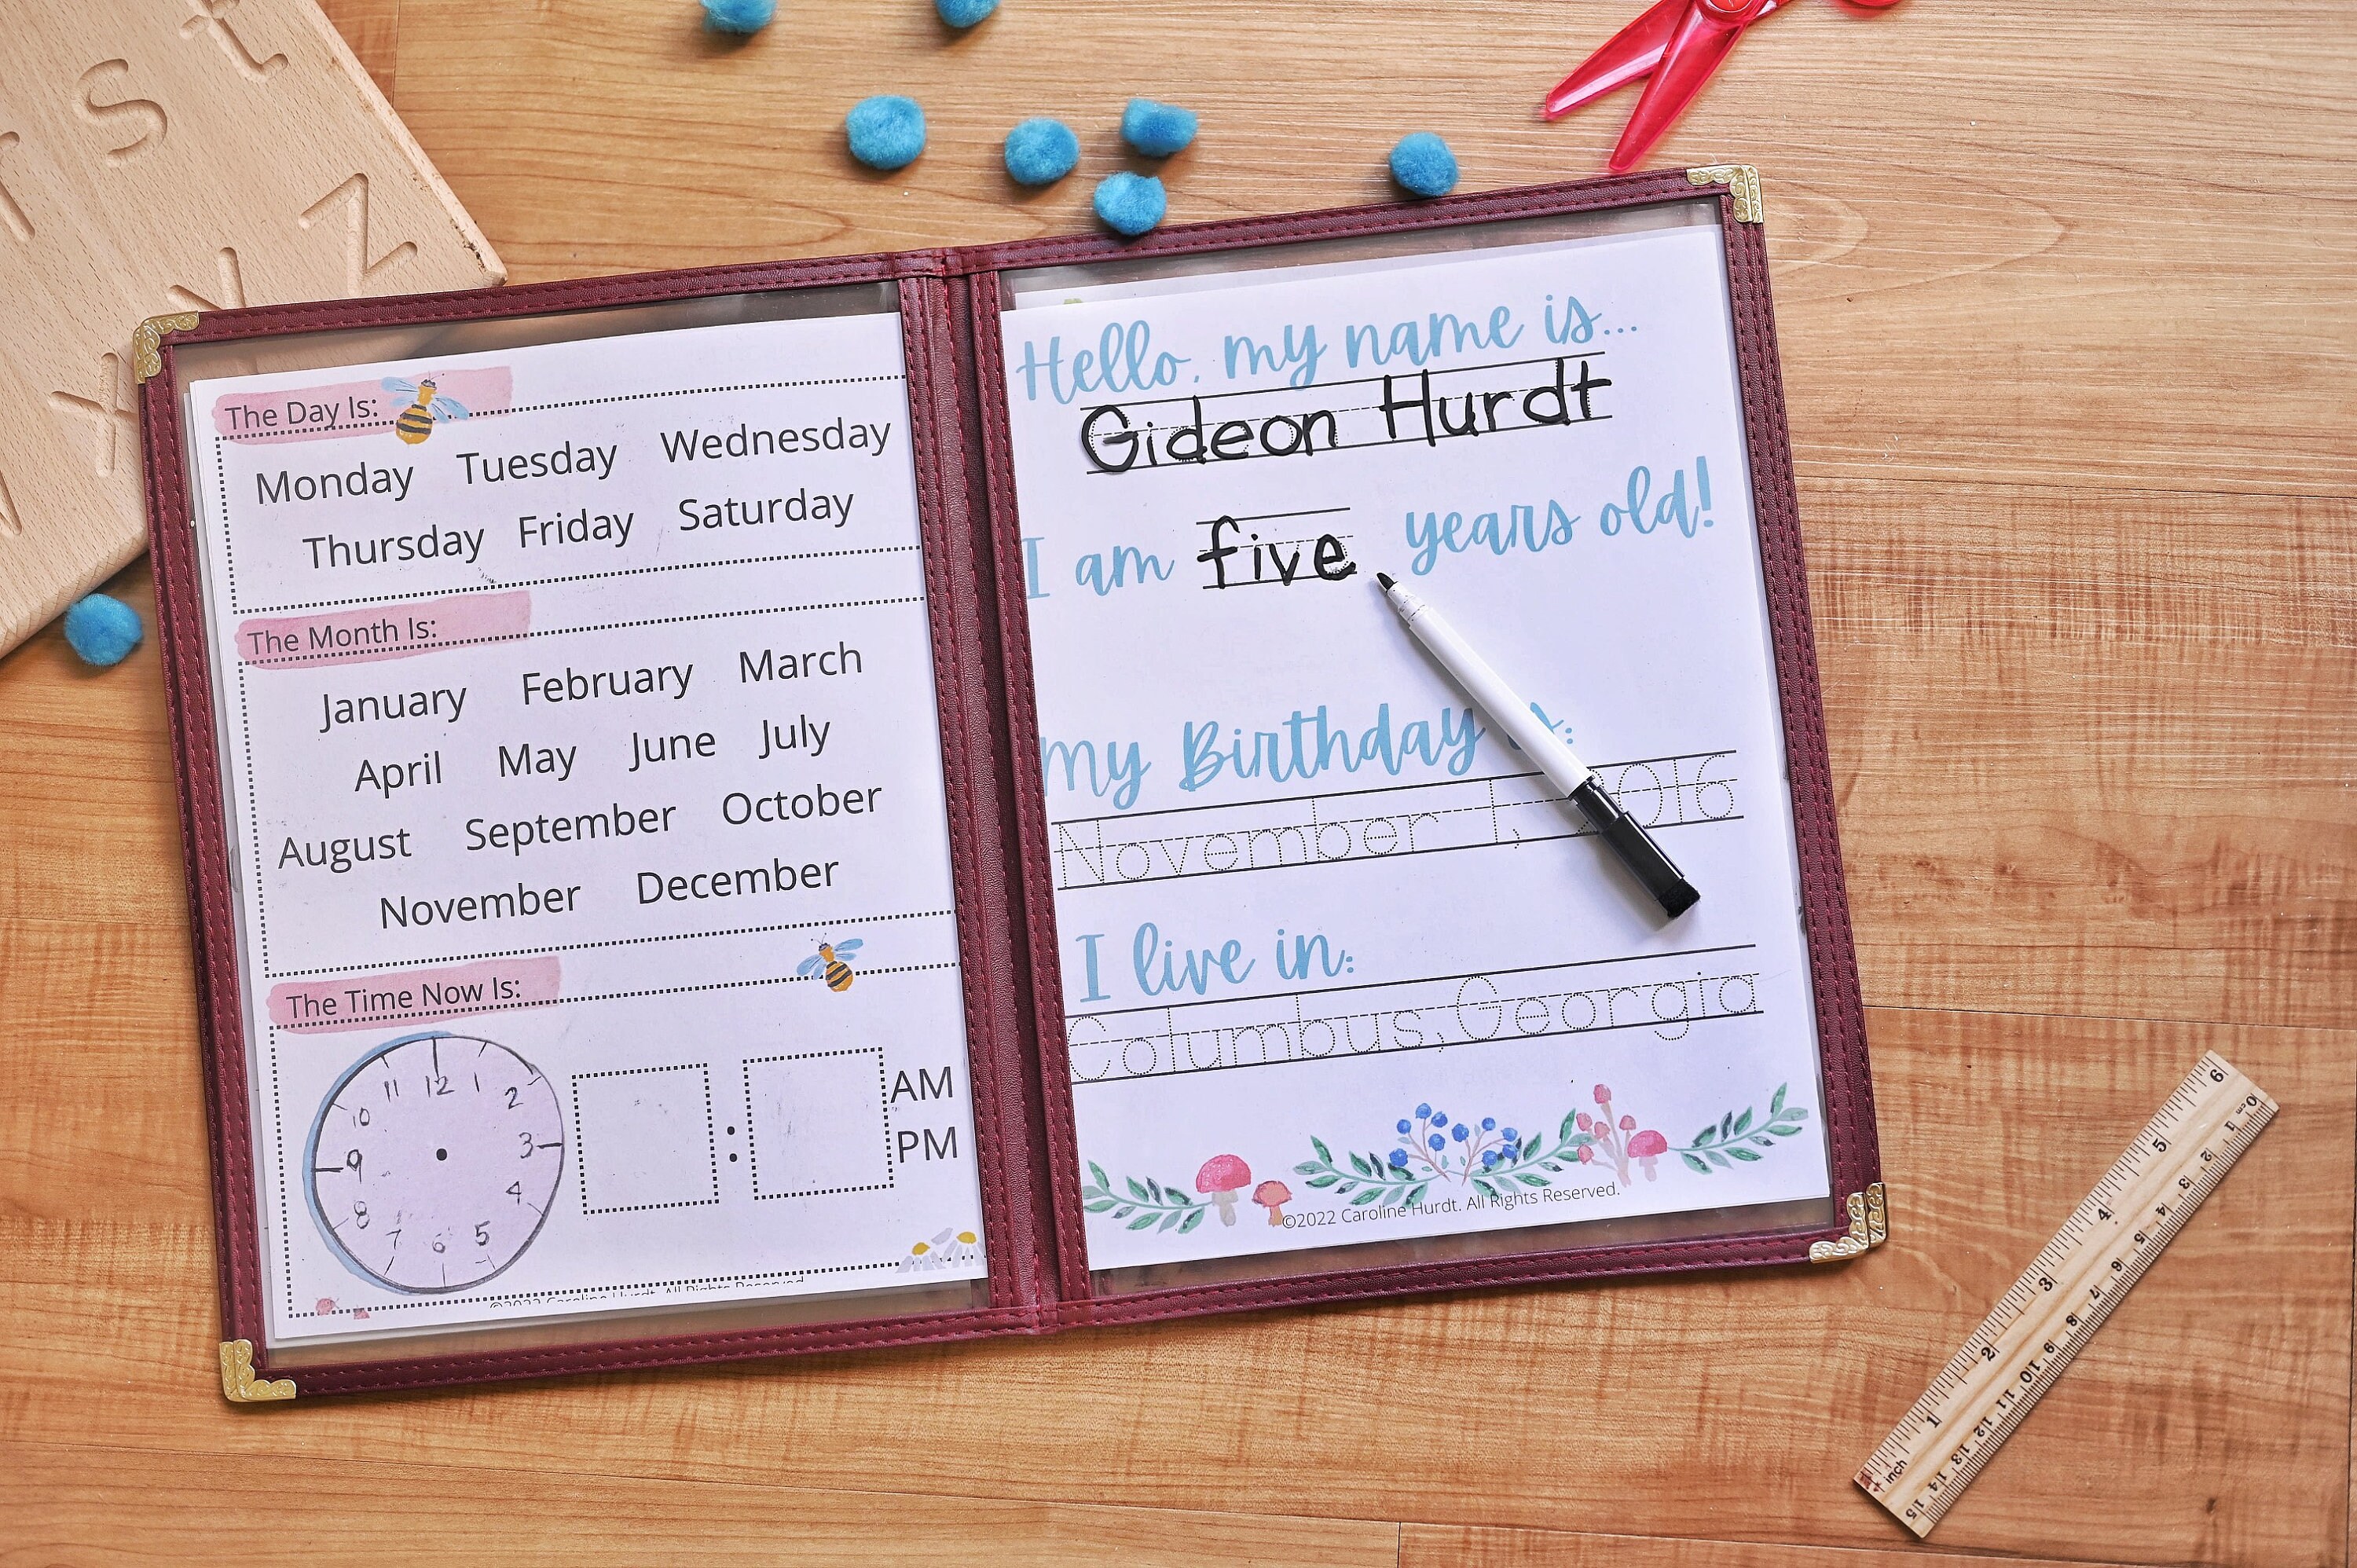 s t
z
x
The Day Is:
Monday Tuesday Wednesday
Thursday Friday Saturday
The Month Is:
January February March
April May June July
August September October
November December
The Time Now Is:
11 12 1
10 2
9 3
8 4
7 6 5
:
AM
PM
©2022 Caroline Hurdt. All Rights Reserved.
Hello, my name is...
Gideon Hurdt
I am five years old!
My Birthday is:
November 1, 2016
I live in:
Columbus, Georgia
©2022 Caroline Hurdt. All Rights Reserved.
inch 1 2 3 4 5 6
0 cm 1 2 3 4 5 6 7 8 9 10 11 12 13 14 15